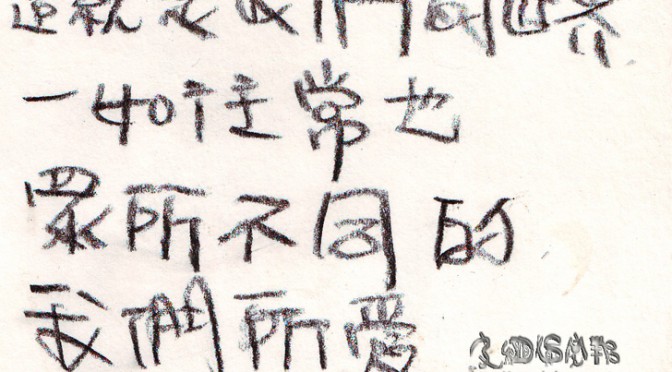 這就是我們的世界
一如往常也
眾所不同的
我們所愛